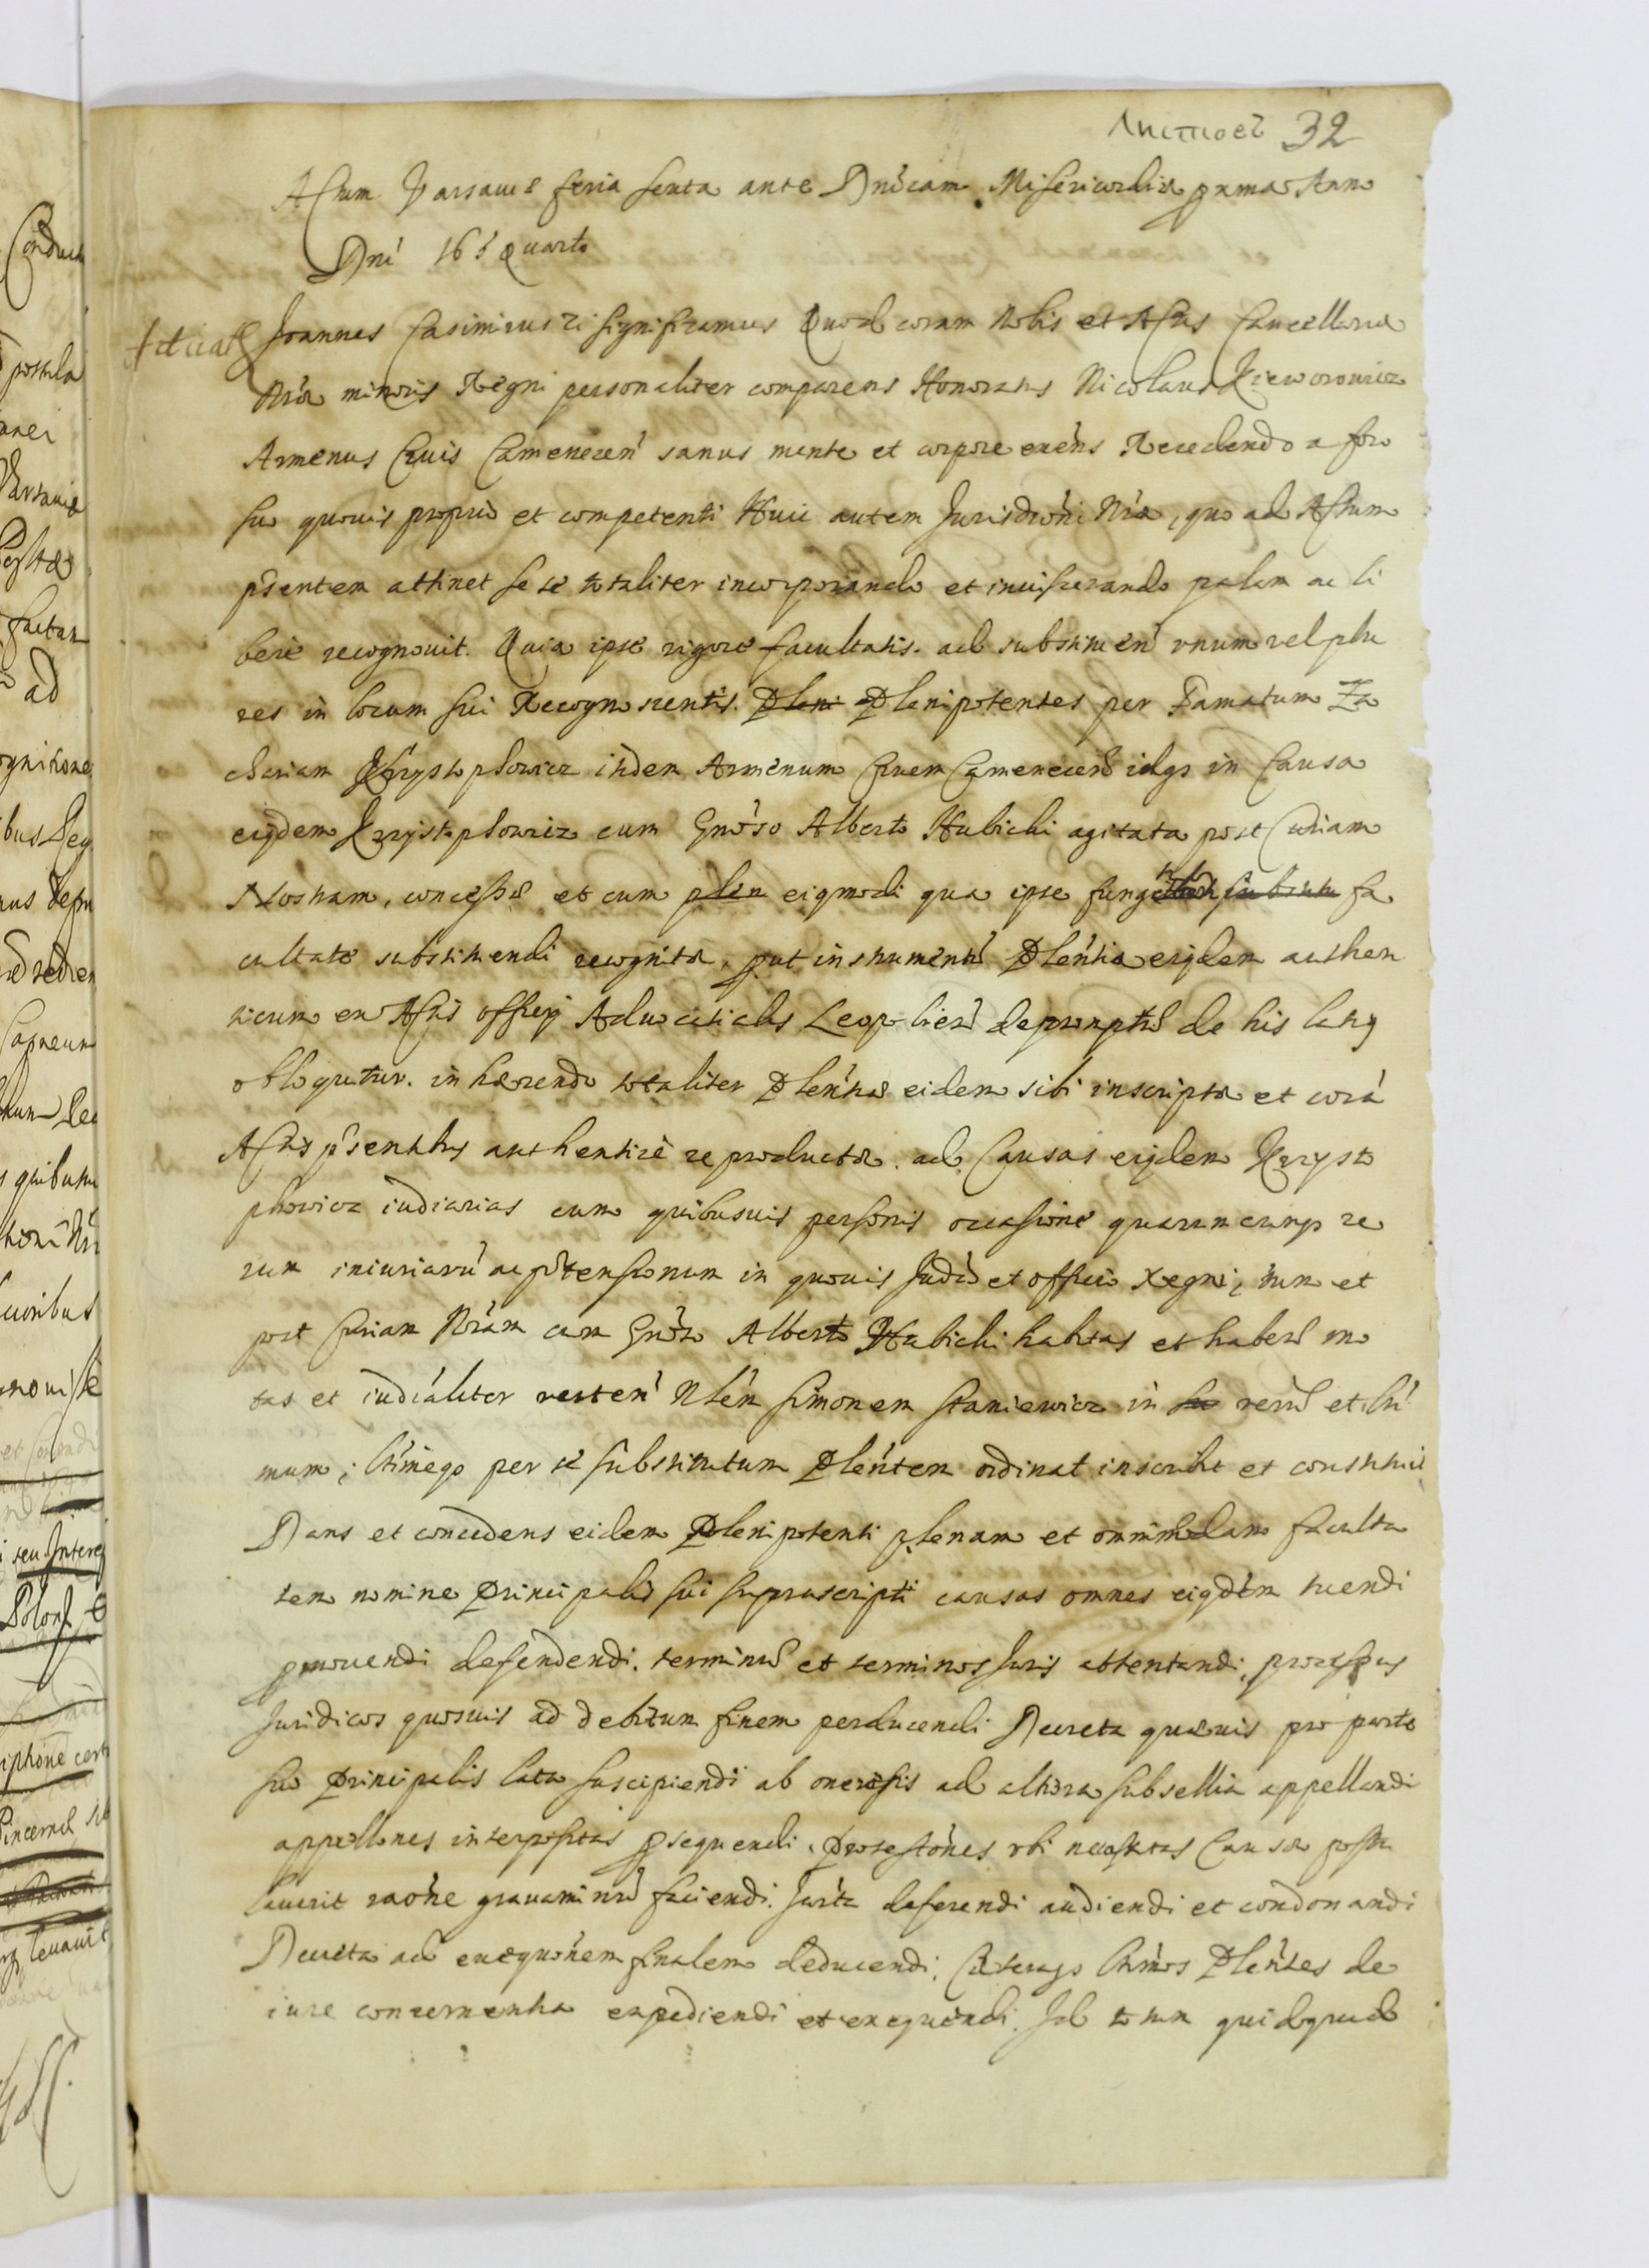 32
Actum Varsaviæ feria sexta ante Dnicam Misericordiæ proxima Anno
Dni 165 Quarto
Joannes Casimirus Significamus Quod coram Nobis et Actis Cancellariæ
Nræ minoris Regni personaliter comparens Honoratus Nicolaus
Armenus Civis Camenecen sanus mente et corpore exens Recedendo a foro
suo quovis proprio et competenti Huic autem Jurisdroni Nræ, quo ad Actum
pñtentem attinet se se totaliter incorporando et inviscerando palam ac li
bere recognovit. Quia ipse vigore facultatis ad substituen unum vel plu
res in locum sui Recognoscentis Pleni Plenipotentes per Famatum Za
chariam Krzysztophowicz itidem Armenum Civem Camenecen idq in Causa
eiqdem Krzysztophowicz cum Gnoso Alberto Hubicki agitata post Curiam
Nostram, concessæ et cum plen eiqmodi qua ipse fungitur substitu fa
cultate substituendi recognitæ, put instrumentū Plentiæ eiqdem authen
ticum ex Actis officij Advocatialis Leopolien depromptū de his latiq
obloquitur. inhærendo totaliter Plentiæ eidem sibi inscriptæ et corā
Actis pñsentibus authentice reproductæ. ad Causas eiqdem Krzyszto
phowicz iudiciarias cum quibusvis personis occasione quarumcunq re
rum iniuriarū ac ptensionum in quovis Judō et officio Regni, tum et
post Curiam Nram cum Gnoso Alberto Hubicki habitas et haben mo
tas et iudialiter verten Nblem Simonem Staniewicz in su verū et ltī
mum, ltimeqo per se substitutum Plentem ordinat inscribit et constituit
Dans et concedens eidem Plenipotenti plenam et omnimodam faculta
tem nomine Principalis sui suprascripti causas omnes eiqdem tuendi
promovendi defendendi. terminū et terminos Juris attentandi, processus
Juridicos quosvis ad debitum finem perducendi Decreta quævis pro parte
sui Principalis lata suscipiendi ab onerosis ad altiora subsellia appellandi
appellones interpositas psequendi. Protestōnes ubi necessitas Causæ postu
laverit raōne gravaminū faciendi. Jurta deferendi audiendi et condonandi
Decreta ad exequōnem finalem deducendi. Cæteraqo ltimos Plentes de
iure concernentia expediendi et exequendi. Id totum quidquid